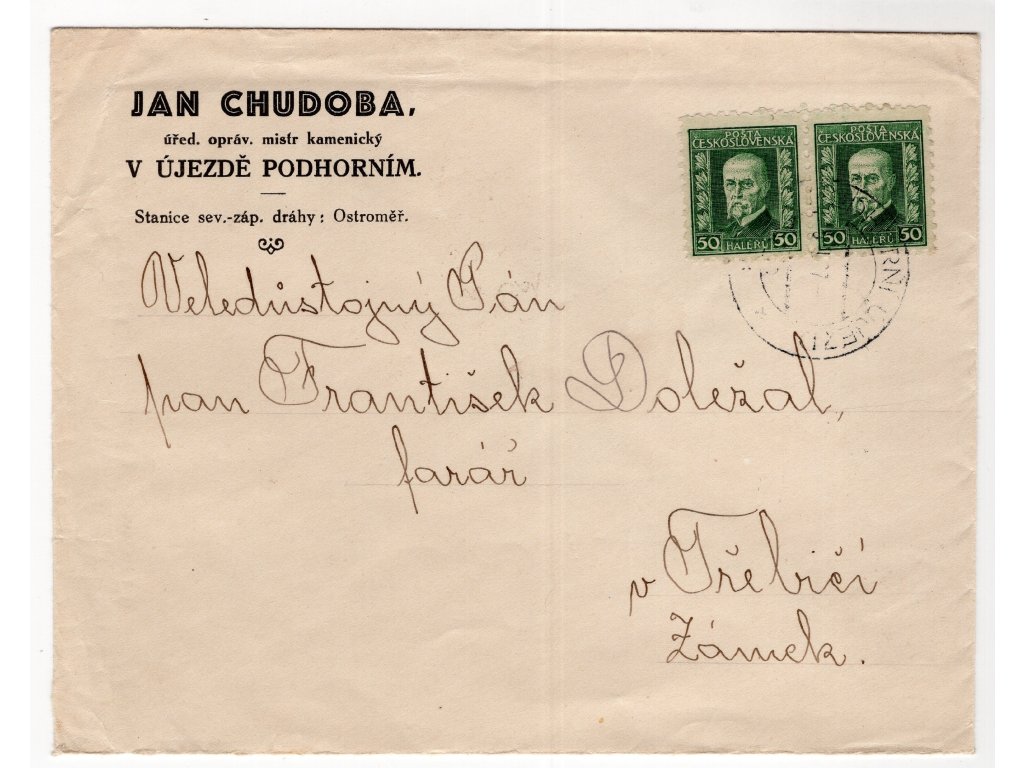 JAN CHUDOBA,
úřed. opráv. mistr kamenický
V ÚJEZDĚ PODHORNÍM.
Stanice sev.-záp. dráhy: Ostroměř.
POŠTA
ČESKOSLOVENSKÁ
50 HALÉŘŮ 50
POŠTA
ČESKOSLOVENSKÁ
50 HALÉŘŮ 50
Veledůstojný Pán
pan František Doležal,
farář
v Třebíčí
Zámek.